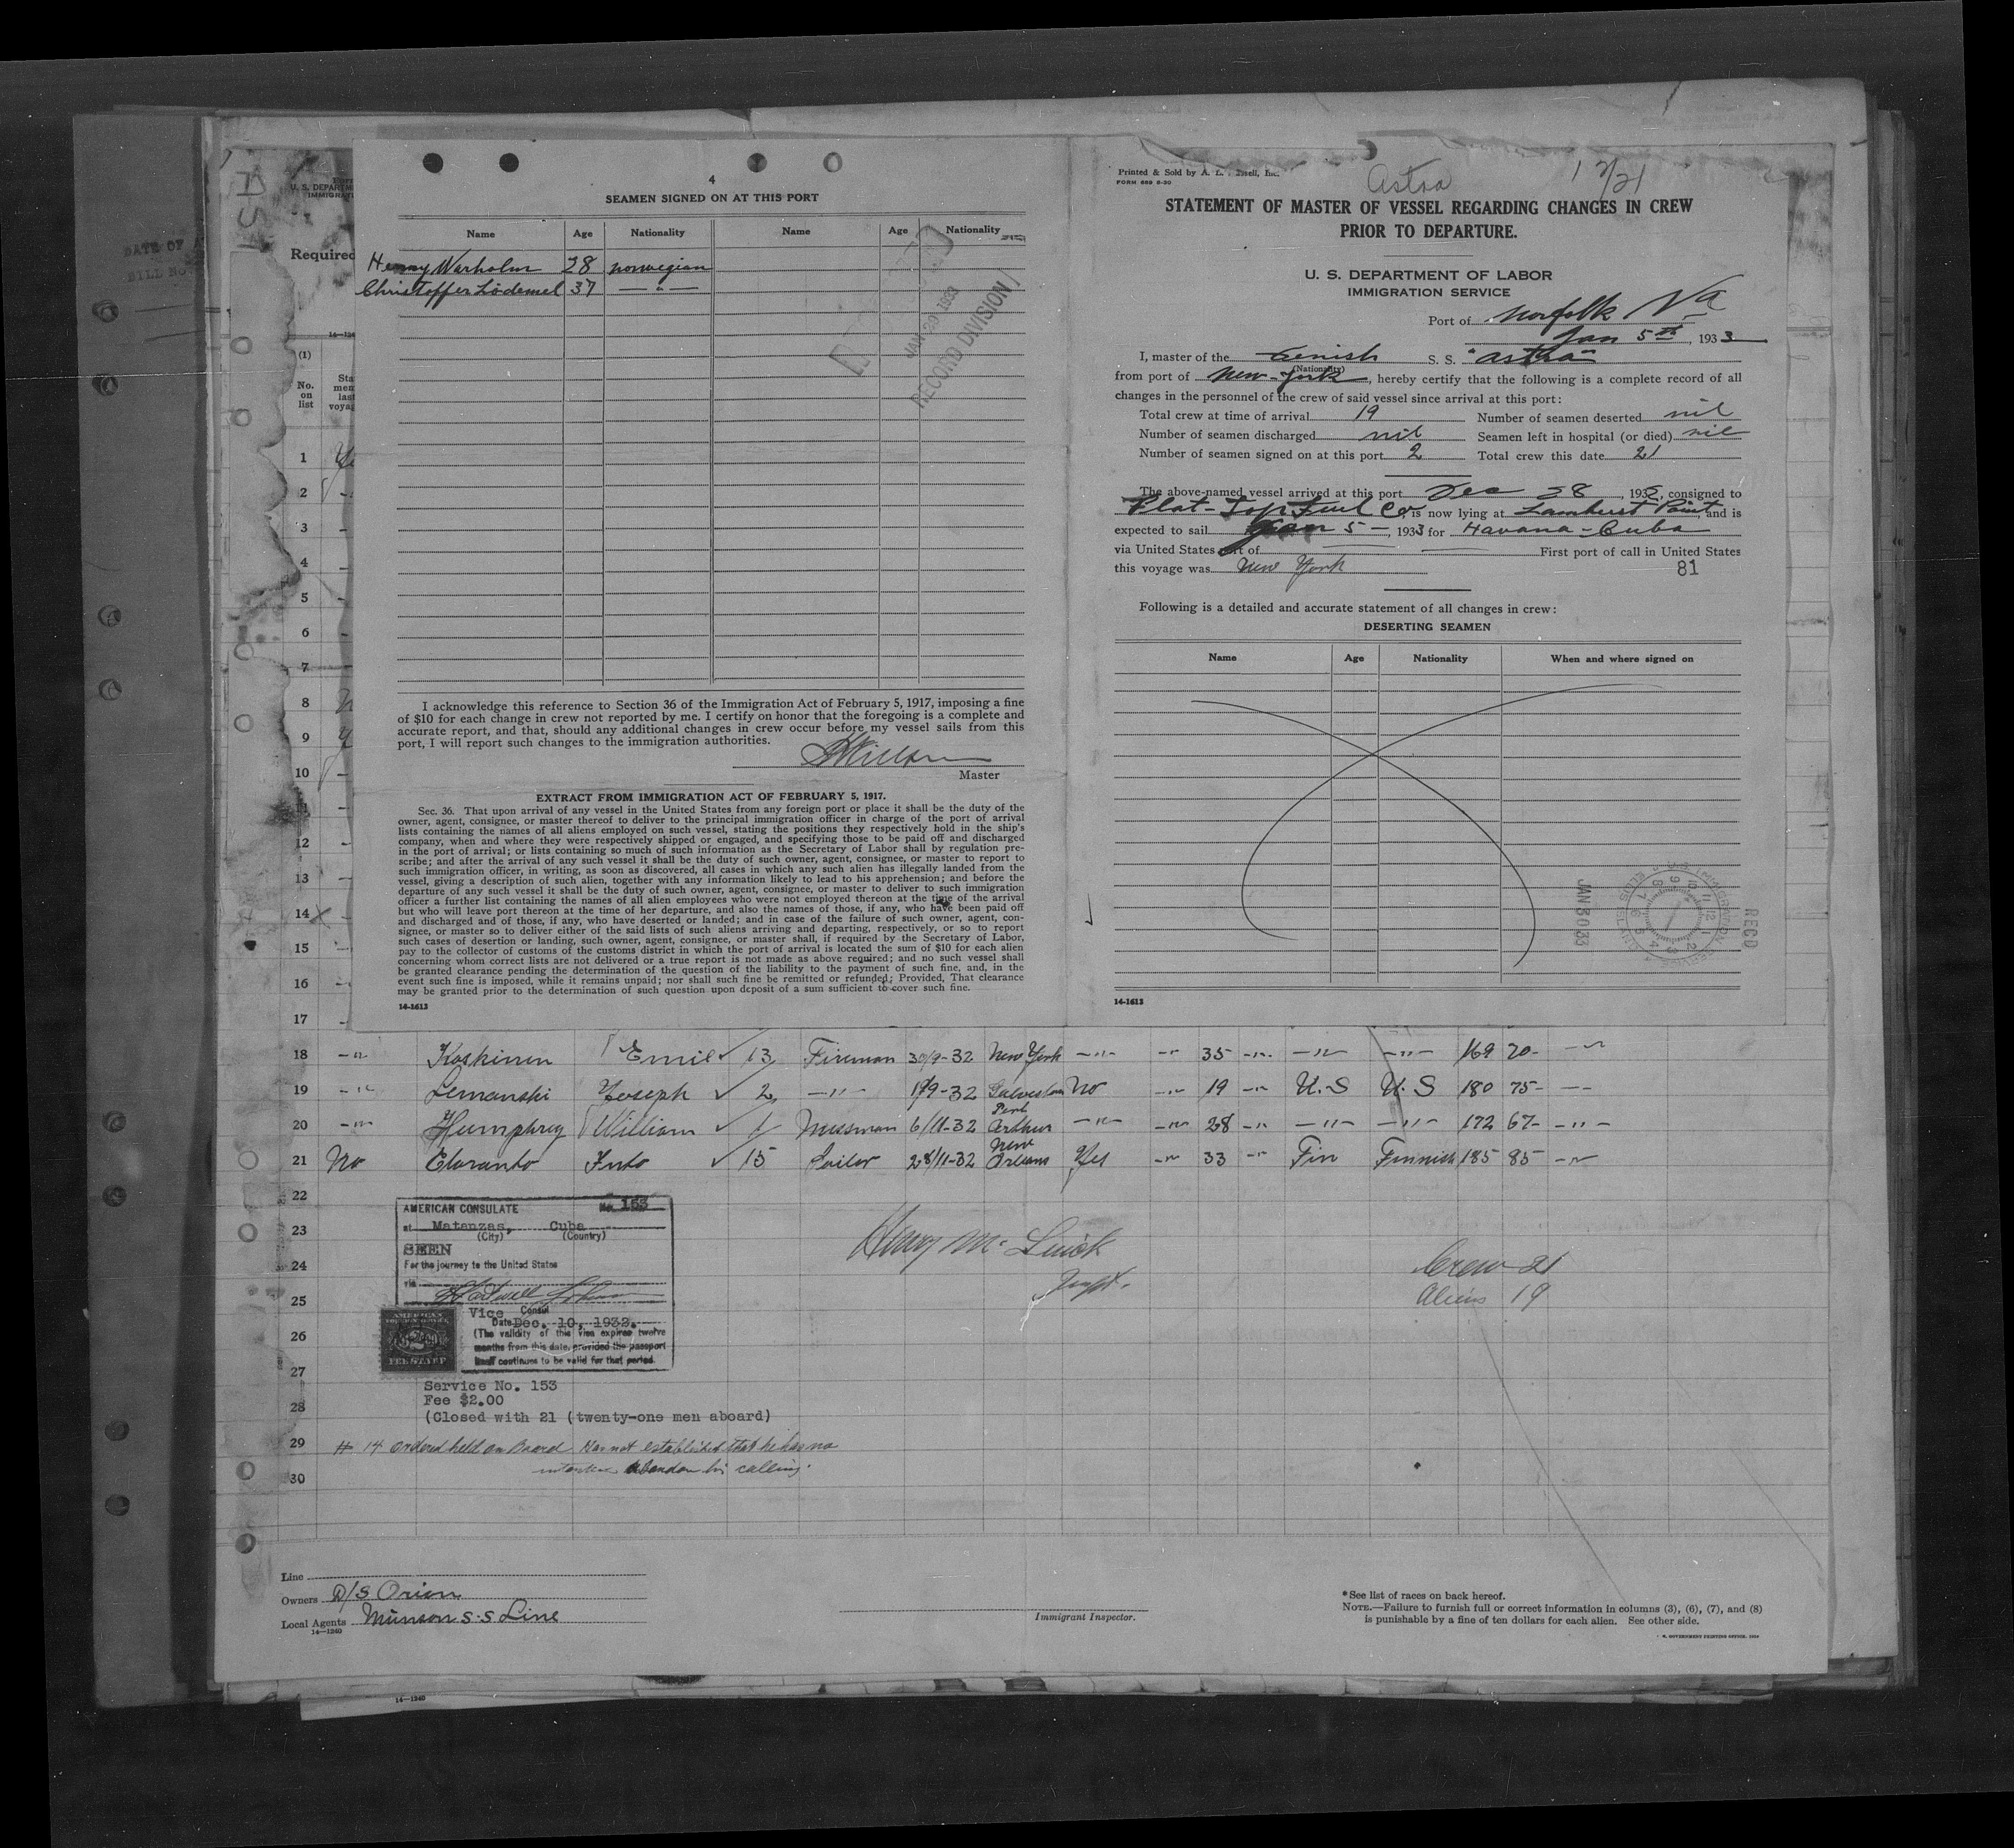 4
SEAMEN SIGNED ON AT THIS PORT
Name Age Nationality Name Age Nationality
Henry Warholm 28 norwegian
Christoffer Lodemel 37 — " —
JAN 30 1933
RECORD DIVISION
I acknowledge this reference to Section 36 of the Immigration Act of February 5, 1917, imposing a fine
of $10 for each change in crew not reported by me. I certify on honor that the foregoing is a complete and
accurate report, and that, should any additional changes in crew occur before my vessel sails from this
port, I will report such changes to the immigration authorities.
Master
EXTRACT FROM IMMIGRATION ACT OF FEBRUARY 5, 1917.
Sec. 36. That upon arrival of any vessel in the United States from any foreign port or place it shall be the duty of the
owner, agent, consignee, or master thereof to deliver to the principal immigration officer in charge of the port of arrival
lists containing the names of all aliens employed on such vessel, stating the positions they respectively hold in the ship's
company, when and where they were respectively shipped or engaged, and specifying those to be paid off and discharged
in the port of arrival; or lists containing so much of such information as the Secretary of Labor shall by regulation pre-
scribe; and after the arrival of any such vessel it shall be the duty of such owner, agent, consignee, or master to report to
such immigration officer, in writing, as soon as discovered, all cases in which any such alien has illegally landed from the
vessel, giving a description of such alien, together with any information likely to lead to his apprehension; and before the
departure of any such vessel it shall be the duty of such owner, agent, consignee, or master to deliver to such immigration
officer a further list containing the names of all alien employees who were not employed thereon at the time of the arrival
but who will leave port thereon at the time of her departure, and also the names of those, if any, who have been paid off
and discharged and of those, if any, who have deserted or landed; and in case of the failure of such owner, agent, con-
signee, or master so to deliver either of the said lists of such aliens arriving and departing, respectively, or so to report
such cases of desertion or landing, such owner, agent, consignee, or master shall, if required by the Secretary of Labor,
pay to the collector of customs of the customs district in which the port of arrival is located the sum of $10 for each alien
concerning whom correct lists are not delivered or a true report is not made as above required; and no such vessel shall
be granted clearance pending the determination of the question of the liability to the payment of such fine, and, in the
event such fine is imposed, while it remains unpaid; nor shall such fine be remitted or refunded; Provided, That clearance
may be granted prior to the determination of such question upon deposit of a sum sufficient to cover such fine.
14-1613
Printed & Sold by A. L.
FORM 689 6-30
Astra
STATEMENT OF MASTER OF VESSEL REGARDING CHANGES IN CREW
PRIOR TO DEPARTURE.
U. S. DEPARTMENT OF LABOR
IMMIGRATION SERVICE
Port of Norfolk Va
Jan 5th, 1933
I, master of the S. S. "Astra"
(Nationality)
from port of New-York, hereby certify that the following is a complete record of all
changes in the personnel of the crew of said vessel since arrival at this port:
Total crew at time of arrival 19 Number of seamen deserted nil
Number of seamen discharged nil Seamen left in hospital (or died) nil
Number of seamen signed on at this port 2 Total crew this date 21
The above-named vessel arrived at this port Dec 28, 1932, consigned to
Flat-Top Fuel Co, is now lying at Lamberts Point, and is
expected to sail Jan 5-, 1933 for Havana-Cuba
via United States port of First port of call in United States
this voyage was New York 81
Following is a detailed and accurate statement of all changes in crew:
DESERTING SEAMEN
Name Age Nationality When and where signed on
RECD
JAN 30 33
14-1613
DATE OF
BILL NO
U. S. DEPARTM
IMMIGRATI
Required
(1)
No.
on
list
1
2
3
4
5
6
7
8
9
10
11
12
13
14
15
16
17
18 -"- Koskinen Emil 13 Fireman 30/9-32 New York -"- -"- 35 -"- -"- -"- 169 70- -"-
19 -"- Lemanski Joseph 2 -"- 19/9-32 Galveston No -"- 19 -"- U.S U.S 180 75- -"-
20 -"- Humphrey William 1 Messman 6/11-32 Port Arthur -"- -"- 28 -"- -"- -"- 172 67- -"-
21 No Eloranto Into 15 Sailor 28/11-32 New Orleans Yes -"- 33 -"- Fin Finnish 185 85- -"-
22
23
24
25
26
27
28
29
30
AMERICAN CONSULATE No. 153
at Matanzas, Cuba
(City) (Country)
SEEN
For the journey to the United States
via
Vice Consul
Date Dec. 10, 1932.
(The validity of this visa expires twelve
months from this date, provided the passport
itself continues to be valid for that period.
AMERICAN
$2.00
FEE STAMP
Service No. 153
Fee $2.00
(Closed with 21 (twenty-one men aboard)
# 14 ordered held on Board Has not established that he has no
intention abandon his calling.
Crew 21
Aliens 19
Line
Owners D/S Orion
Local Agents Munson S.S Line
14-1240
Immigrant Inspector.
*See list of races on back hereof.
NOTE.—Failure to furnish full or correct information in columns (3), (6), (7), and (8)
is punishable by a fine of ten dollars for each alien. See other side.
14-1240